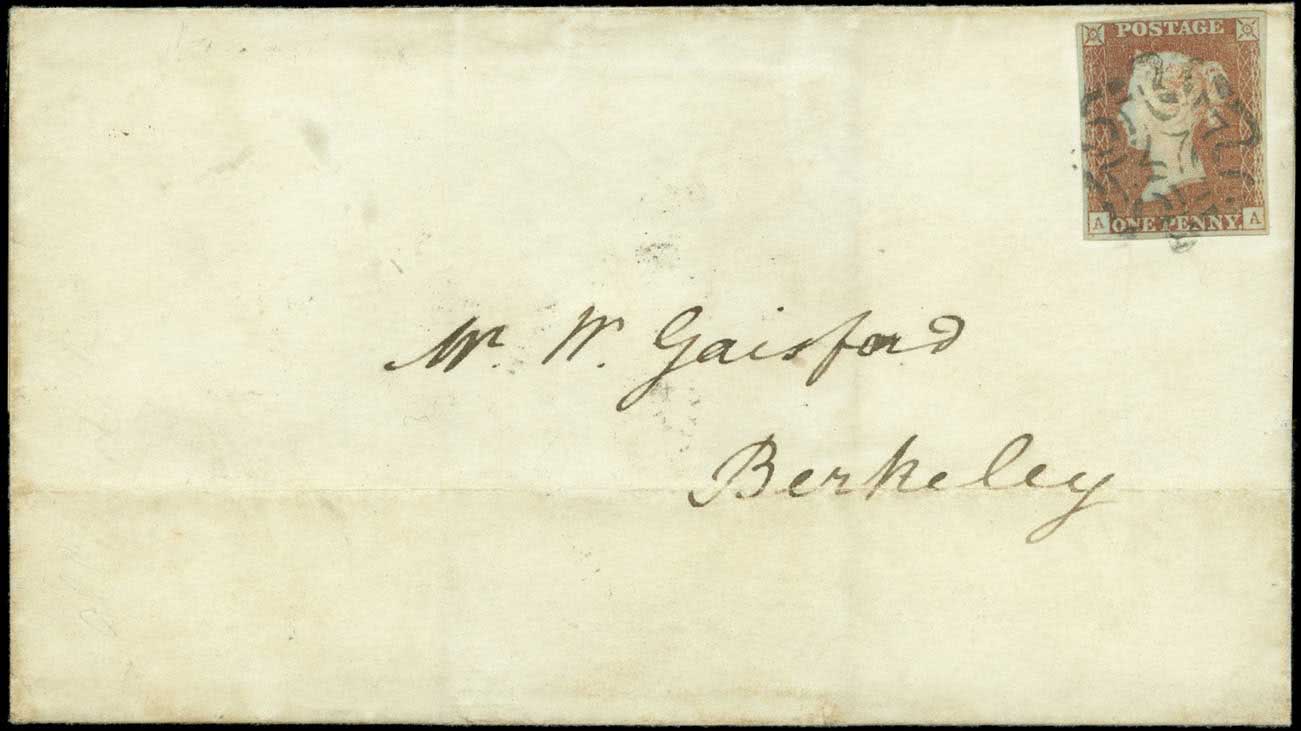 POSTAGE
A ONE PENNY. A
Mr. W. Gaisford
Berkeley